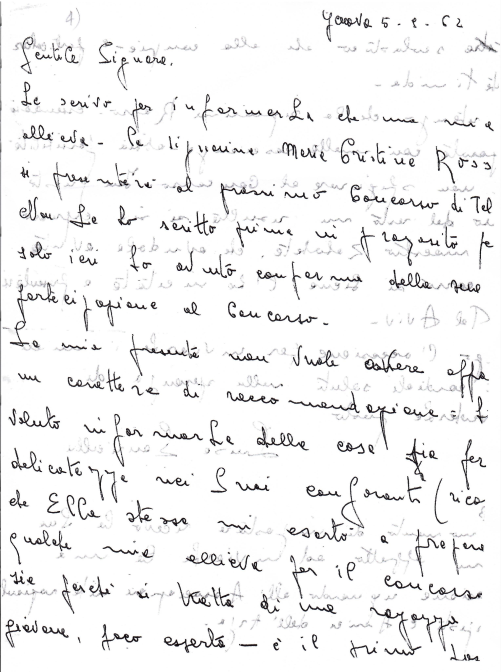 Genova 5. 2. 62
Gentile Signora,
Le scrivo per informarLa che una mia
allieva - la signorina Maria Cristina Ross
si presenterà al prossimo Concorso di Tel
Non Le ho scritto prima in proposito pe
solo ieri ho avuto conferma della sua
partecipazione al Concorso.
La mia presente non vuole avere affa
un carattere di raccomandazione - L
voluto informarLa della cosa sia per
delicatezza nei Suoi confronti (rico
che Ella stessa mi esortò a prepara
qualche mia allieva per il concorso
sia perché si tratta di una ragazza
giovane, poco esperta - è il primo